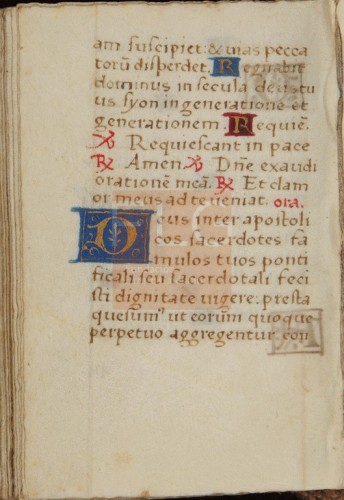 am suscipiet: & uias pecca
torū disperdet. Regnabit
dominus in secula deus tu
us syon in generatione et
generationem. Requiē.
℣ Requiescant in pace
℟ Amen ℣ Dn̄e exaudi
orationē meā. ℟ Et clam
or meus ad te ueniat. ora.
Deus inter apostoli
cos sacerdotes fa
mulos tuos ponti
ficali seu sacerdotali feci
sti dignitate uigere: presta
quesum' ut eorum quoque
perpetuo aggregentur con